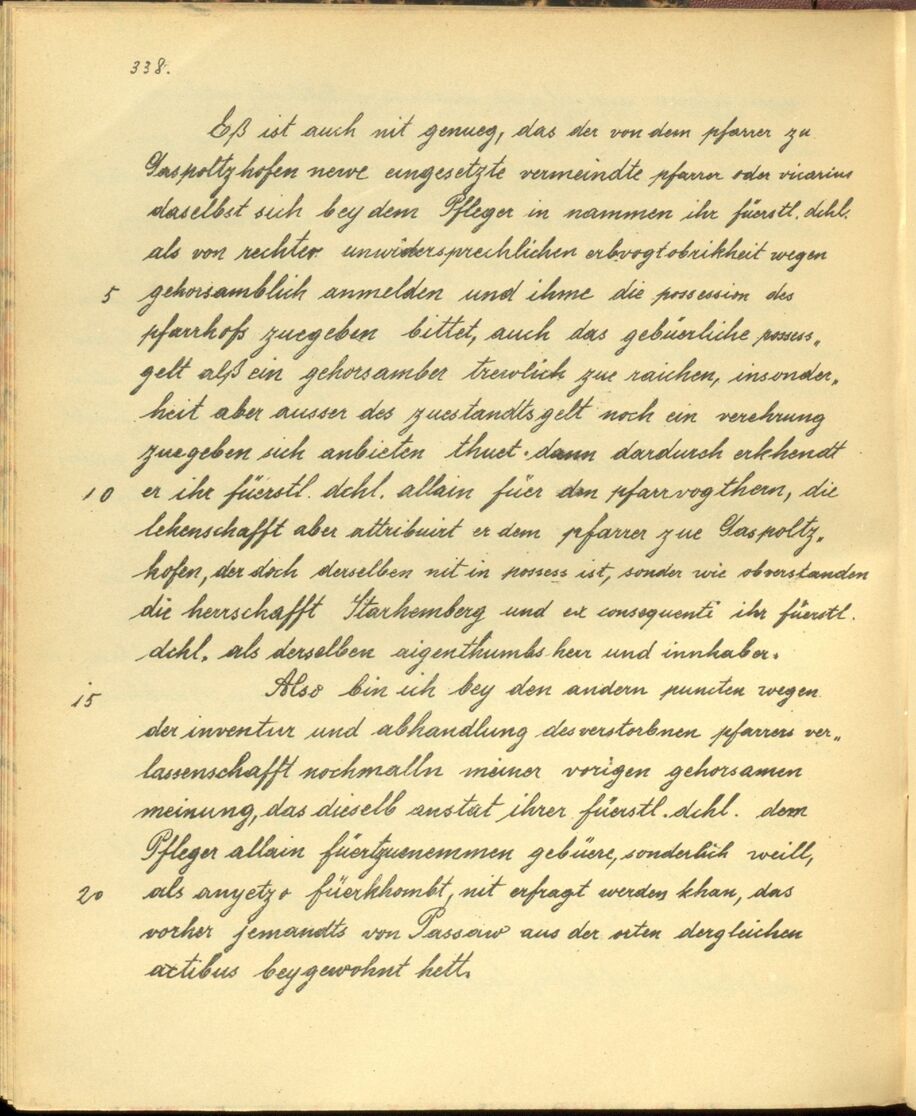 338.
Eß ist auch nit genueg, das der von dem pfarrer zu
Gaspoltzhofen newe eingesetzte vermeindte pfarrer oder vicarius
daselbst sich bey dem Pfleger in nammen ihr füerstl. dchl.
als von rechter unwidersprechlichen erbvogtobrikheit wegen
5 gehorsamblich anmelden und ihme die possession des
pfarrhofs zuegeben bittet, auch das gebüerliche possess„
gelt alß ein gehorsamber trewlich zue raichen, insonder„
heit aber ausser des zuestandtsgelt noch ein verehrung
zuegeben sich anbieten thuet. dann dardurch erkhendt
10 er ihr füerstl. dchl. allain füer den pfarrvogthern, die
lehenschafft aber attribuirt er dem pfarrer zue Gaspoltz„
hofen, der doch derselben nit in possess ist, sonder wie obverstanden
die herrschafft Starhemberg und ex consequenti ihr füerstl.
dchl. als derselben aigenthumbs herr und innhaber.
15 Also bin ich bey den andern puncten wegen
der inventur und abhandlung des verstorbnen pfarrers ver„
lassenschafft nochmalln meiner vorigen gehorsamen
meinung, das dieselb anstat ihrer füerstl. dchl. dem
Pfleger allain füertzuenemmen gebüere, sonderlich weill,
20 als anyetzo füerkhombt, nit erfragt werden khan, das
vorher jemandts von Passaw aus der orten dergleichen
actibus beygewohnt hett.